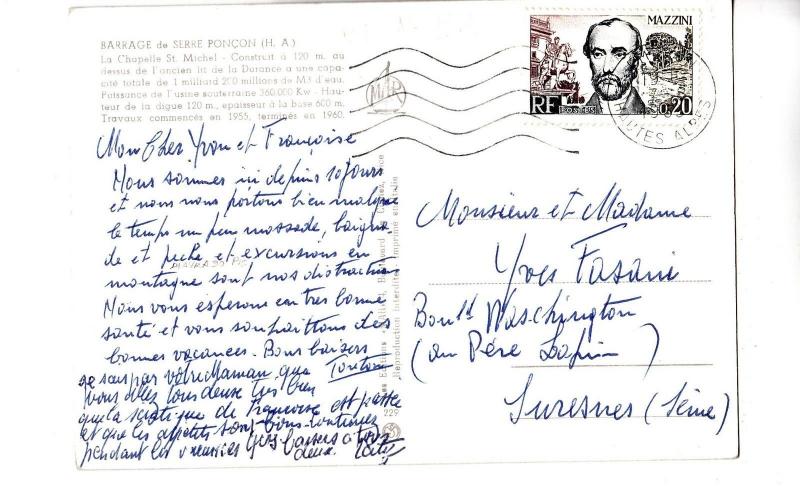 BARRAGE de SERRE PONÇON (H. A.)
La Chapelle St. Michel - Construit à 120 m. au
dessus de l'ancien lit de la Durance a une capa-
cité totale de 1 milliard 200 millions de M3 d'eau.
Puissance de l'usine souterraine 360.000 Kw - Hau-
teur de la digue 120 m., epaisseur à la base 600 m.
Travaux commencés en 1955, terminés en 1960.
MAR
MAZZINI
RF
0,20
HAUTES ALPES
Mon Cher Yvon et Françoise
Nous sommes ici depuis 10 jours
et nous nous portons bien malgré
le temps un peu maussade, baigna
de et peche et excursions en
montagne sont nos distractions
Nous vous esperons en tres bonne
santé et vous souhaittons des
bonnes vacances. Bons baisers
Tonton
je sais par votre Maman que
vous allez tous deux tres bien
que la sciatique de Françoise est passée
et que les appetits sont
pendant les baisers à tous
deux.
Reproduction interdite Imprimé en Italie
229
Monsieur et Madame
Yves Fasani
Boul.d Waschington
(au Père Lapin)
Suresnes (Seine)